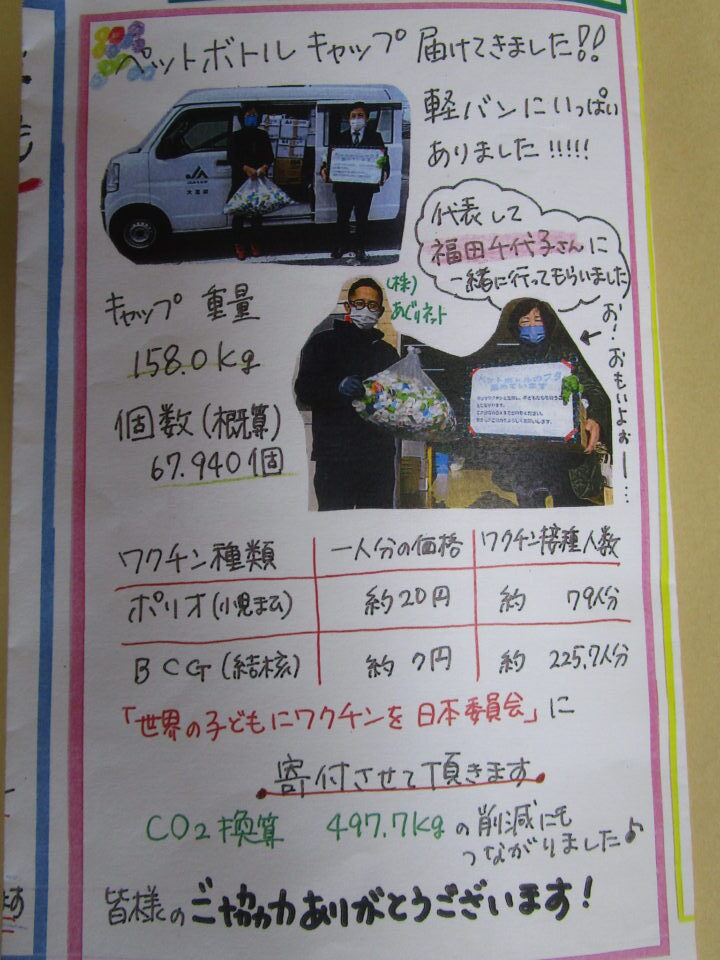 ペットボトル キャップ 届けてきました!!
軽バンにいっぱい
ありました!!!!!
JA
代表して
福田千代子さんに
一緒に行ってもらいました
(株)
あぐりネット
お!おもいよぉー…
キャップ 重量
158.0kg
個数(概算)
67.940個
ペットボトルのフタ
集めています
ワクチン種類 一人分の価格 ワクチン接種人数
ポリオ(小児まひ) 約20円 約 79人分
BCG(結核) 約 7円 約 225.7人分
「世界の子どもにワクチンを 日本委員会」に
寄付させて頂きます
CO2換算 497.7kgの削減にも
つながりました♪
皆様のご協力ありがとうございます!